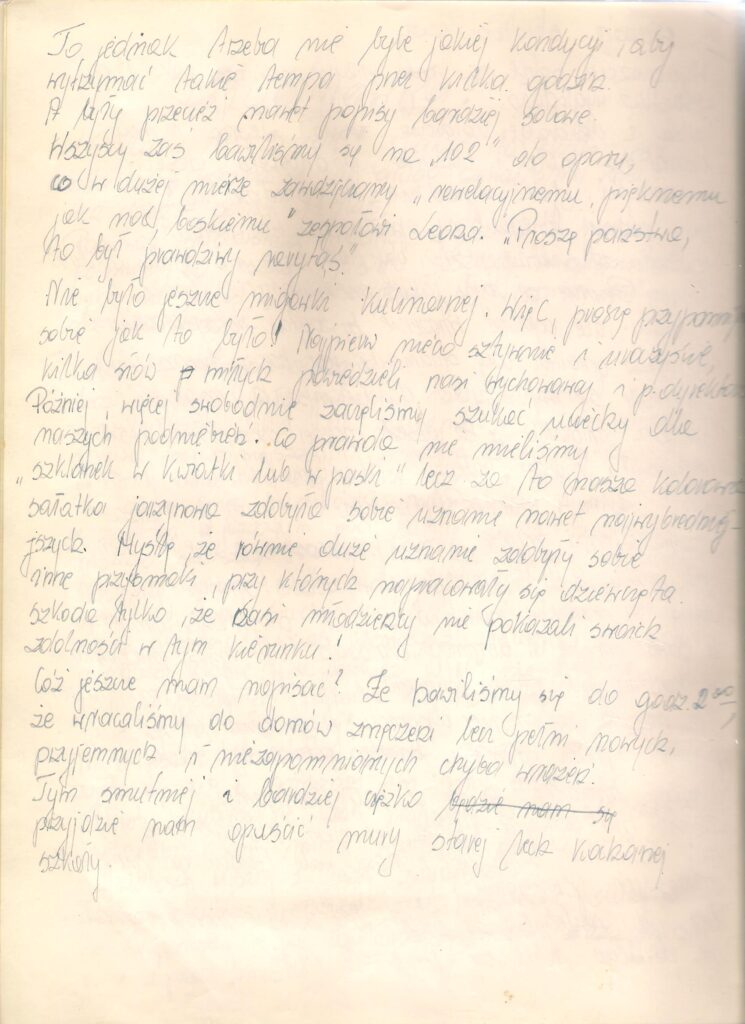 To jednak trzeba nie byle jakiej kondycji aby
wytrzymać takie tempa przez kilka godzin.
A były przecież nawet popisy bardziej solowe.
Wszyscy zaś bawiliśmy się na „102” do oporu,
co w dużej mierze zawdzięczamy „rewelacyjnemu, pięknemu
jak noc, boskiemu” zespołowi Leona. „Proszę państwa,
to był prawdziwy rarytas”.
Nie było jeszcze migawki kulinarnej. Więc, proszę
sobie jak to było! Najpierw nieco sztywnie i uroczyście,
kilka słów miłych powiedzieli nasi wychowawcy i p.
Później, więcej swobodnie zaczęliśmy szukać uciechy dla
naszych podniebień. Co prawda nie mieliśmy
„szklanek w kwiatki lub w paski” lecz za to nasza kolorowa
sałatka jarzynowa zdobyła sobie uznanie nawet najwybredniej-
szych. Myślę, że równie duże uznanie zdobyły sobie
inne przysmaki, przy których napracowały się dziewczęta.
szkoda tylko, że nasi młodzieńcy nie pokazali swoich
zdolności w tym kierunku!
Cóż jeszcze mam napisać? Że bawiliśmy się do godz. 2⁰⁰,
że wracaliśmy do domów zmęczeni lecz pełni nowych,
przyjemnych i niezapomnianych chyba wrażeń.
Tym smutniej i bardziej ciężko będzie nam się
przyjdzie nam opuścić mury starej lecz kochanej
szkoły.